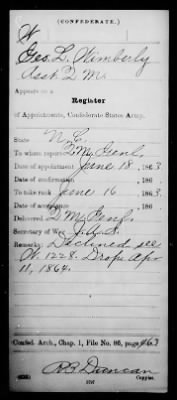 (CONFEDERATE.)
K
Geo. L. Kimberly
Asst Q. M.
Appears on a
Register
of Appointments, Confederate States Army.
State N.C.
To whom report Q. M. Genl.
Date of appointment June 18, 1863.
Date of confirmation , 186 .
To take rank June 16, 1863.
Date of acceptance , 186 .
Delivered Q M Genl.
Secretary of War J.A.S.
Remarks: Declined see
K. 1228. Dropd Apr
11, 1864.
Confed. Arch., Chap. 1, File No. 86, page 463
R. B. Duncan
Copyist.